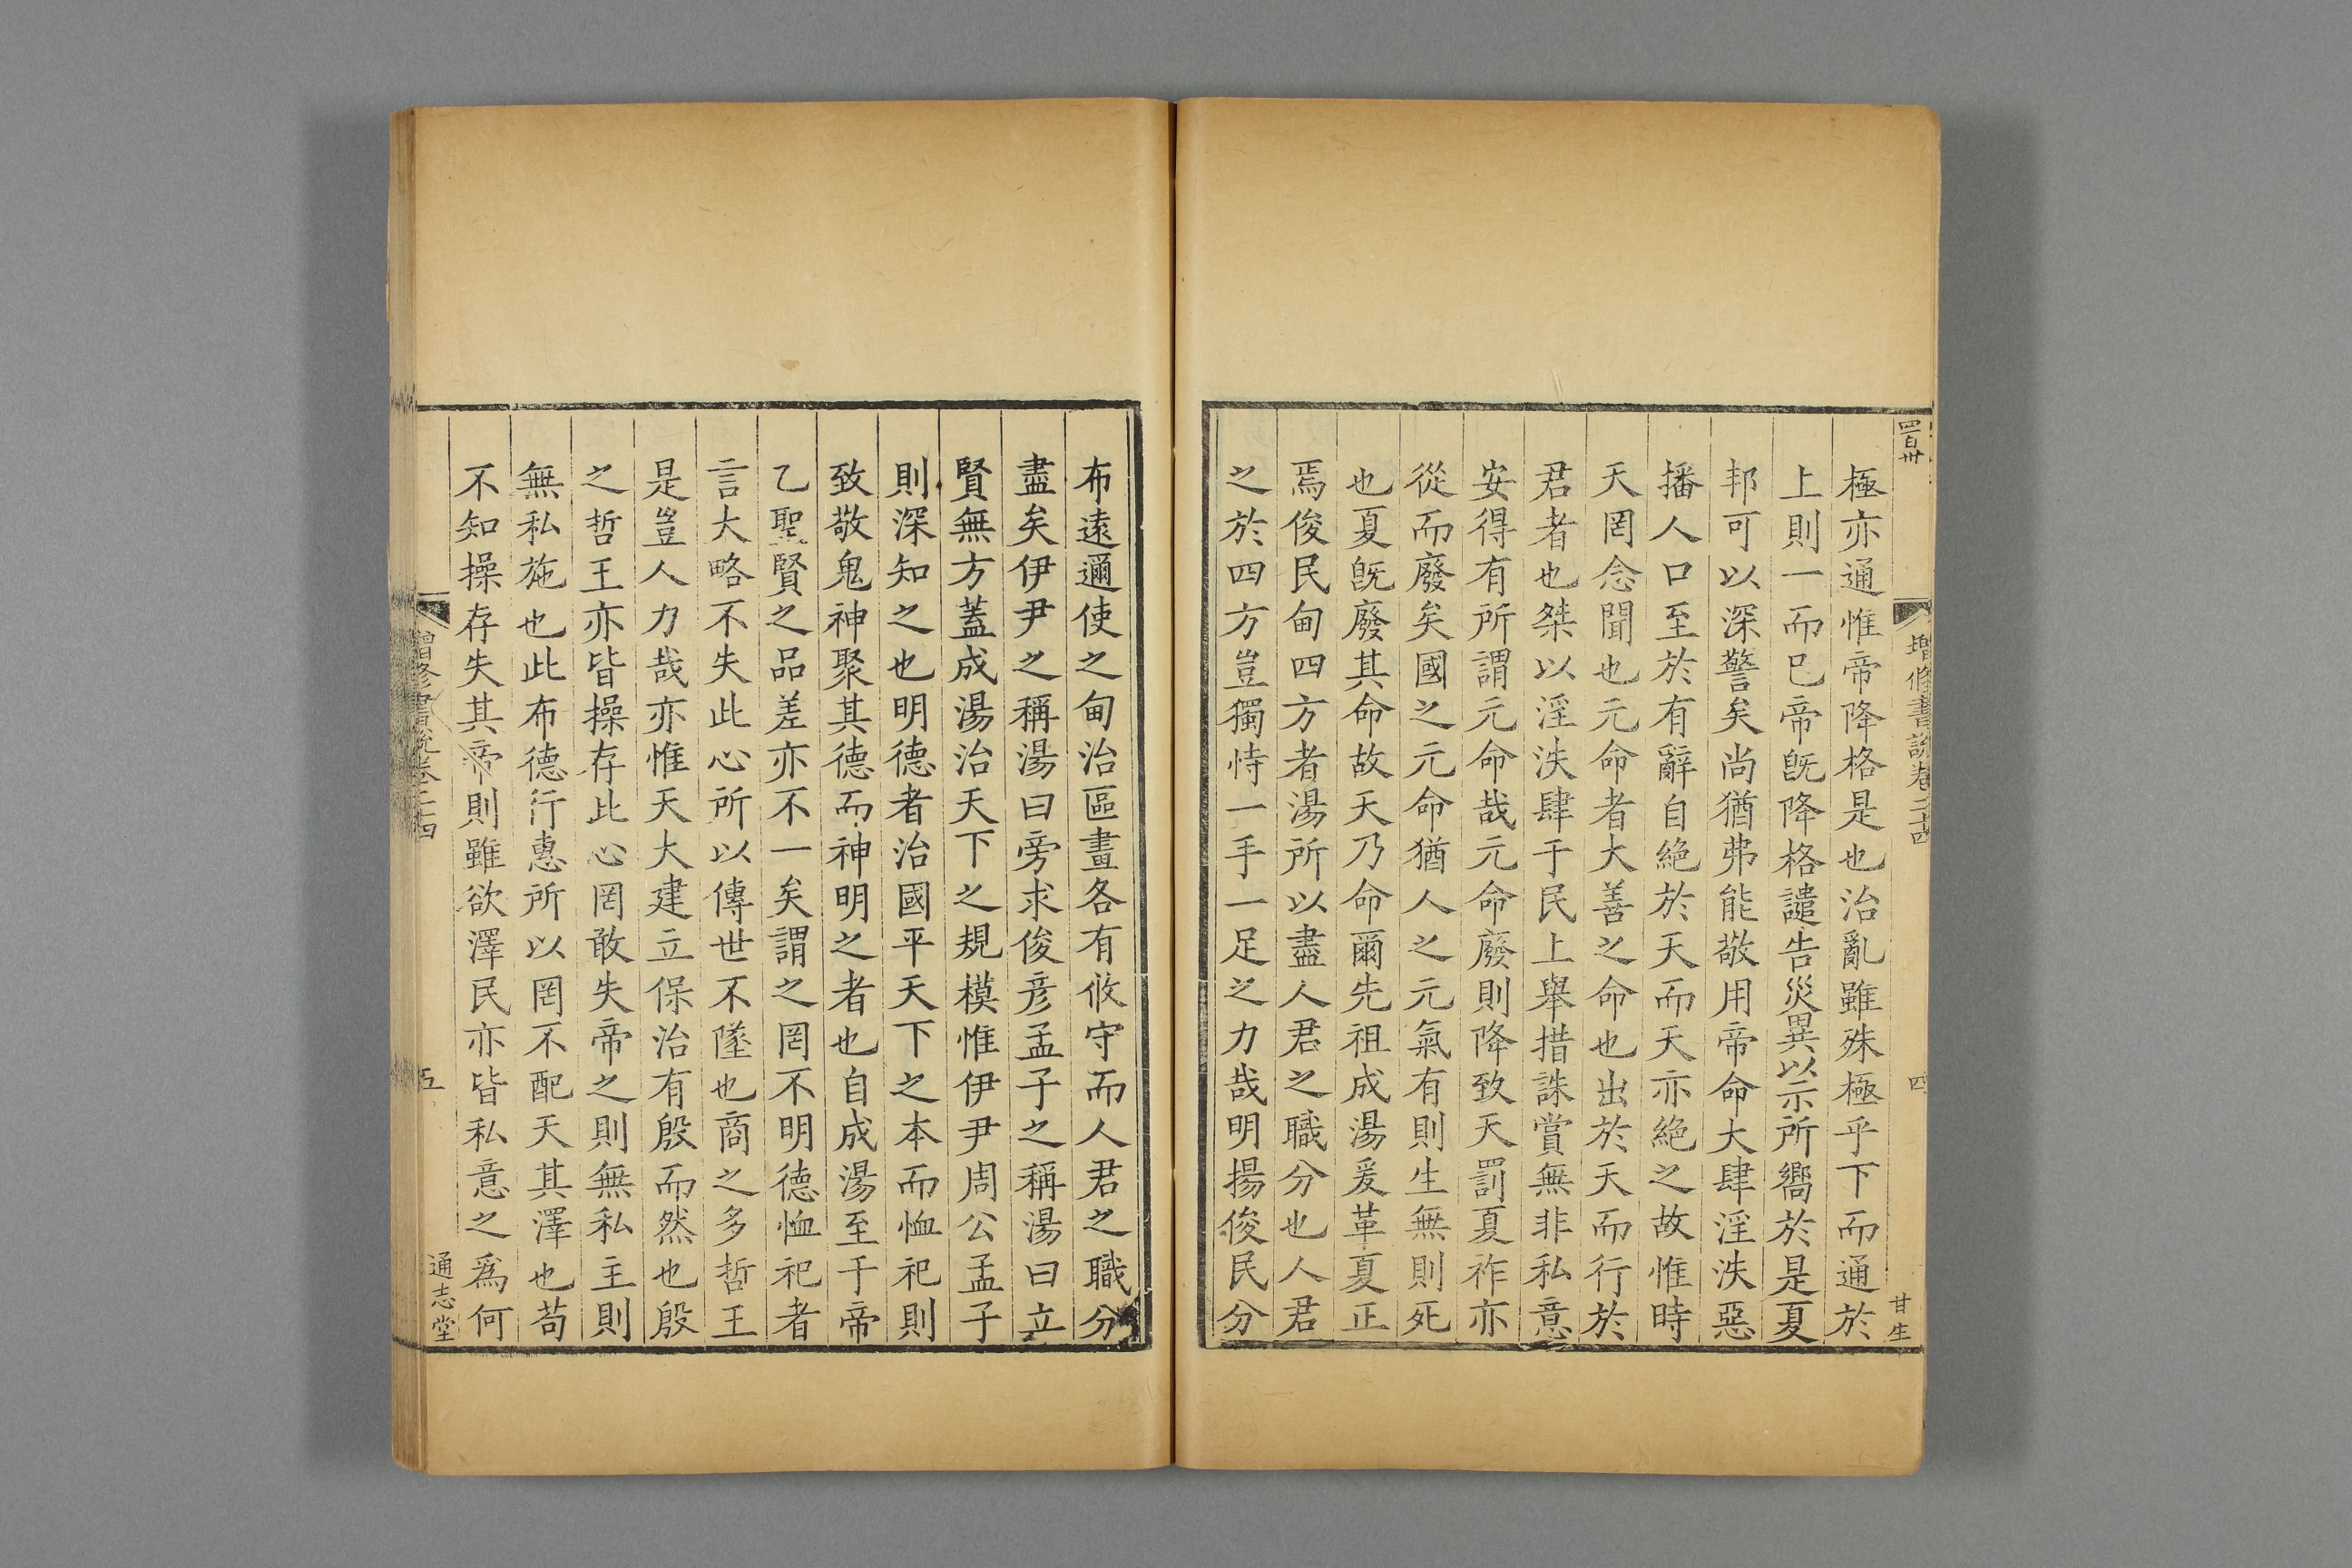 四百卅
增修書說卷二十四
四
甘生
極亦通惟帝降格是也治亂雖殊極乎下而通於
上則一而已帝旣降格譴告災異以示所嚮於是夏
邦可以深警矣尚猶弗能敬用帝命大肆淫泆惡
播人口至於有辭自絕於天而天亦絕之故惟時
天罔念聞也元命者大善之命也出於天而行於
君者也桀以淫泆肆于民上舉措誅賞無非私意
安得有所謂元命哉元命廢則降致天罰夏祚亦
從而廢矣國之元命猶人之元氣有則生無則死
也夏旣廢其命故天乃命爾先祖成湯爰革夏正
焉俊民甸四方者湯所以盡人君之職分也人君
之於四方豈獨恃一手一足之力哉明揚俊民分
布遠邇使之甸治區畫各有攸守而人君之職分
盡矣伊尹之稱湯曰旁求俊彥孟子之稱湯曰立
賢無方蓋成湯治天下之規模惟伊尹周公孟子
則深知之也明德者治國平天下之本而恤祀則
致敬鬼神聚其德而神明之者也自成湯至于帝
乙聖賢之品差亦不一矣謂之罔不明德恤祀者
言大略不失此心所以傳世不墜也商之多哲王
是豈人力哉亦惟天大建立保治有殷而然也殷
之哲王亦皆操存此心罔敢失帝之則無私主則
無私施也此布德行惠所以罔不配天其澤也苟
不知操存失其帝則雖欲澤民亦皆私意之爲何
增修書說卷二十四
五
通志堂